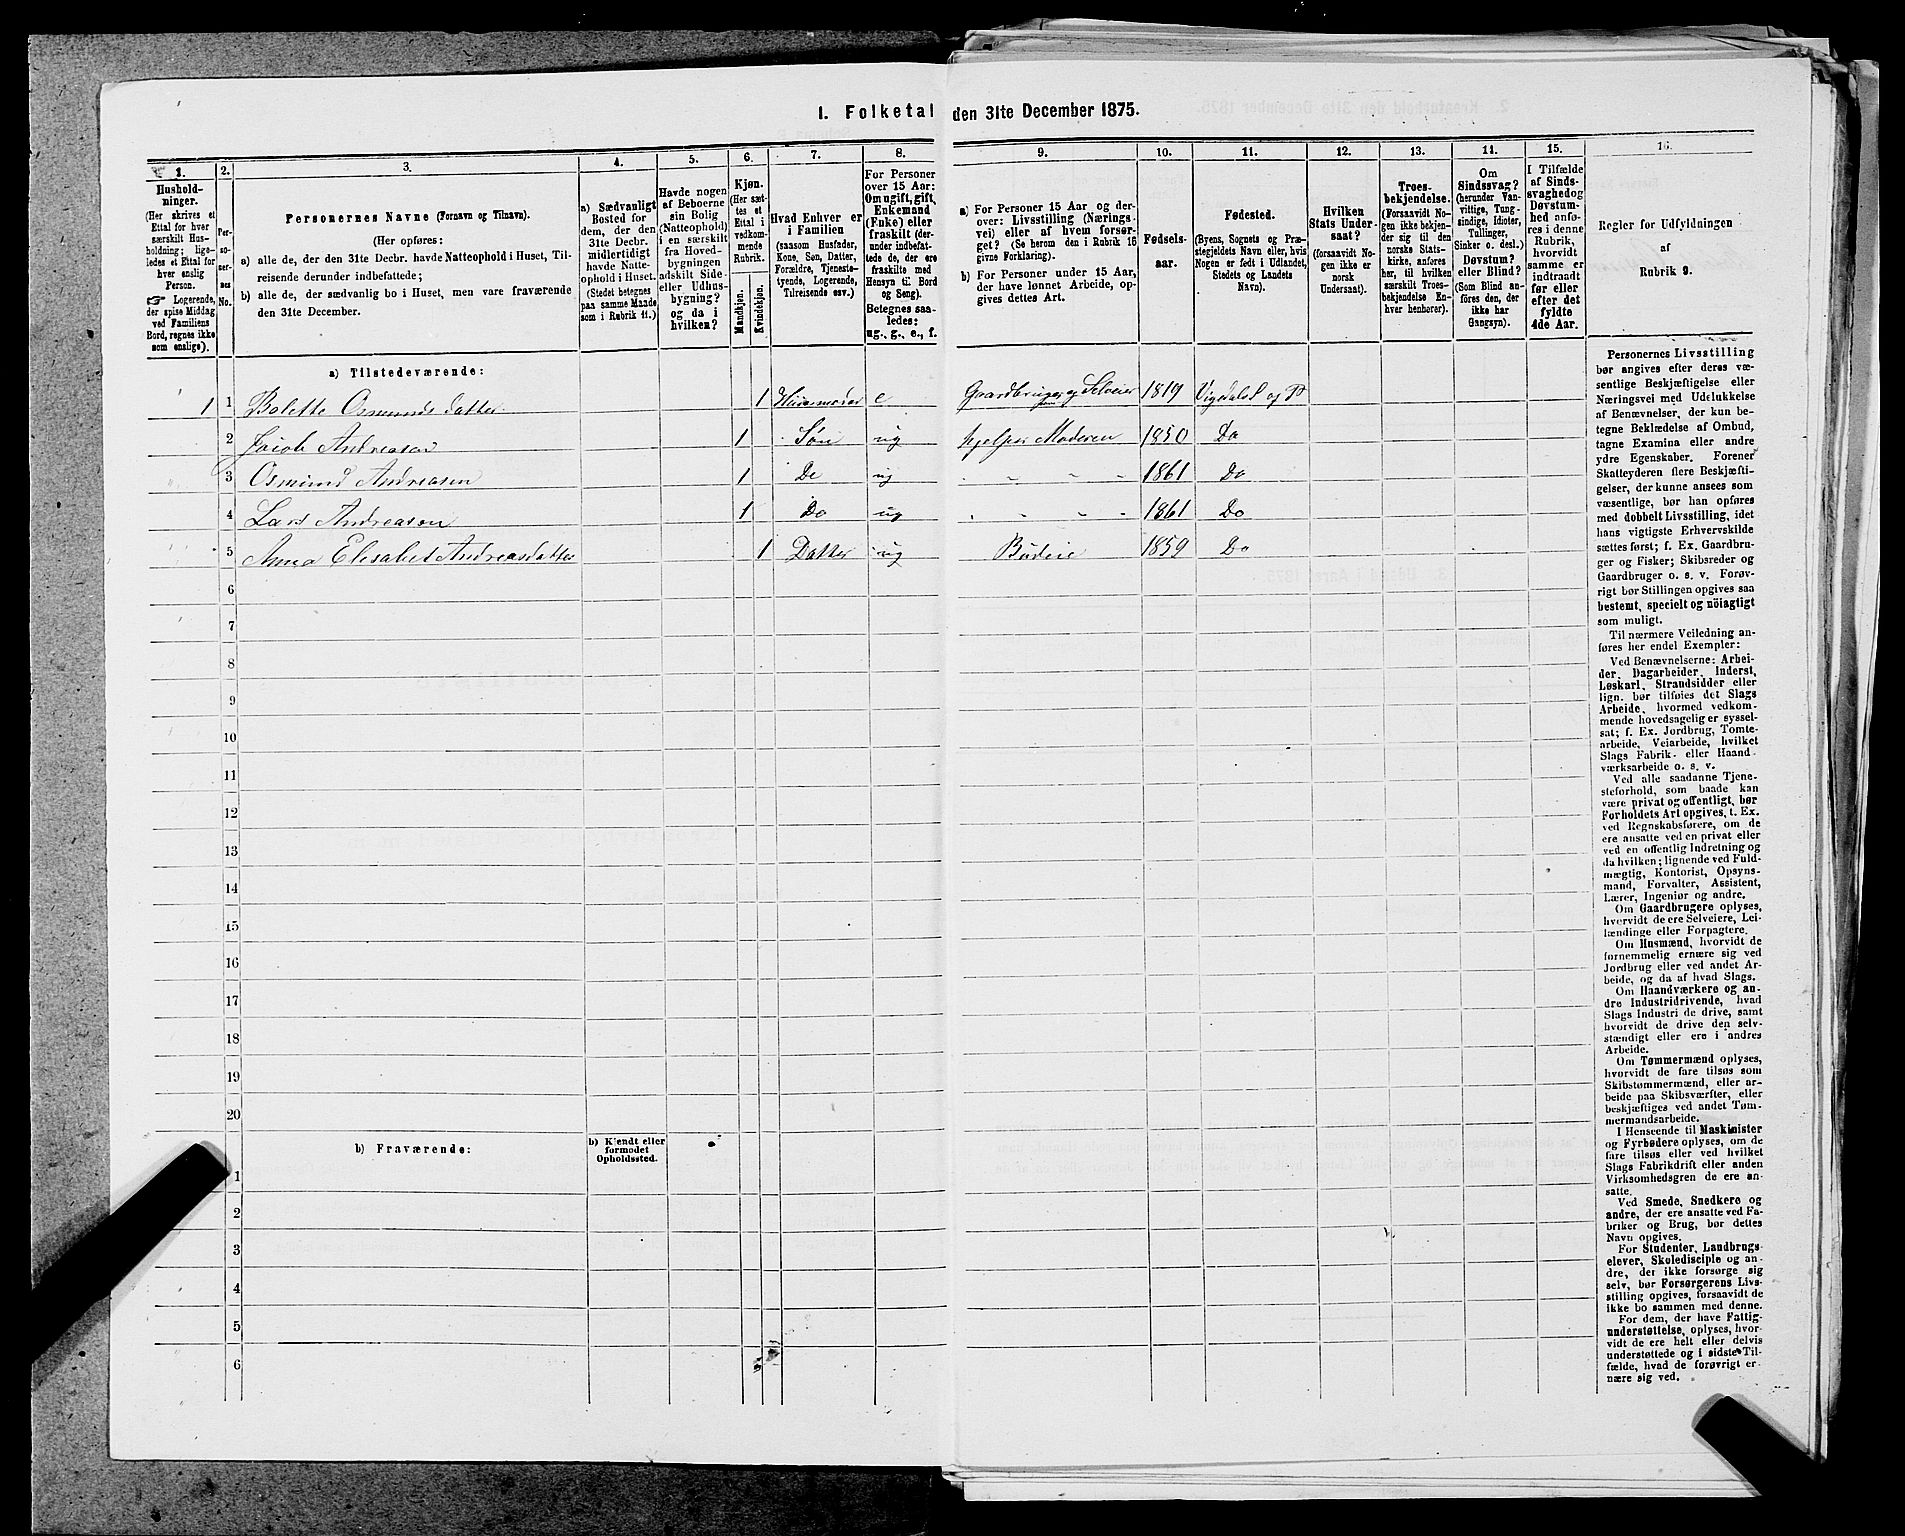 1. Folketal den 31te December 1875.
1. 2. 3. 4. 5. 6. 7. 8. 9. 10. 11. 12. 13. 14. 15. 16.
Hushold-
ninger.
(Her skrives et
Ettal for hver
særskilt Hus-
holdning; lige-
ledes et Ettal for
hver enslig
Person.
☞ Logerende,
der spise Middag
ved Familiens
Bord, regnes ikke
som enslige).
Per-
so-
ner-
nes
No.
Personernes Navne (Fornavn og Tilnavn).
(Her opføres:
a) alle de, der den 31te Decbr. havde Natteophold i Huset, Til-
reisende derunder indbefattede;
b) alle de, der sædvanlig bo i Huset, men vare fraværende
den 31te December.
a) Sædvanligt
Bosted for
dem, der den
31te Decbr.
midlertidigt
havde Natte-
ophold i Huset.
(Stedet betegnes
paa samme Maade
som i Rubrik 11.)
Havde nogen
af Beboerne
sin Bolig
(Natteophold)
i en særskilt
fra Hoved-
bygningen
adskilt Side-
eller Udhus-
bygning?
og da i
hvilken?
Kjøn.
(Her sæt-
tes et
Ettal i
vedkom-
mende
Rubrik.
Mandkjøn.
Kvindekjøn.
Hvad Enhver er
i Familien
(saasom Husfader,
Kone, Søn, Datter,
Forældre, Tjeneste-
tyende, Logerende,
Tilreisende osv.)
For Personer
over 15 Aar:
Om ugift, gift,
Enkemand
(Enke) eller
fraskilt (der-
under indbefat-
tede de, der ere
fraskilte med
Hensyn til Bord
og Seng).
Betegnes saa-
ledes:
ug., g., e., f.
a) For Personer 15 Aar og der-
over: Livsstilling (Nærings-
vei) eller af hvem forsør-
get? (Se herom den i Rubrik 16
givne Forklaring).
b) For Personer under 15 Aar,
der have lønnet Arbeide, op-
gives dettes Art.
Fødsels-
aar.
Fødested.
(Byens, Sognets og Præ-
stegjeldets Navn eller, hvis
Nogen er født i Udlandet,
Stedets og Landets
Navn).
Hvilken
Stats Under-
saat?
(forsaavidt No-
gen ikke er
norsk
Undersaat).
Troes-
bekjendelse.
(Forsaavidt No-
gen ikke bekjen-
der sig til den
norske Stats-
kirke, anføres
her, til hvilken
særskilt Troes-
bekjendelse En-
hver henhører).
Om
Sindssvag?
(herunder Van-
vittige, Tung-
sindige, Idioter,
Tullinger,
Sinker o. desl.)
Døvstum?
eller Blind?
(Som Blind an-
føres den, der
ikke har
Gangsyn).
I Tilfælde
af Sinds-
svaghed og
Døvstum-
hed anfø-
res i denne
Rubrik,
hvorvidt
samme er
indtraadt
før eller
efter det
fyldte
4de Aar.
Regler for Udfyldningen
af
Rubrik 9.
a) Tilstedeværende:
1 1 Bolette Osmunds datter 1 Husmoder e Gaardbruger og Selveier 1819 Vigedals S og P
2 Jacob Andreasen 1 Søn ug hjelper Moderen 1850 Do
3 Osmund Andreasen 1 Do ug " " " " 1861 Do
4 Lars Andreasen 1 Do ug " " " " 1861 Do
5 Anna Elisabet Andreasdatter 1 Datter ug Budeie 1859 Do
6
7
8
9
10
11
12
13
14
15
16
17
18
19
20
b) Fraværende:
b) Kjendt eller
formodet
Opholdssted.
1
2
3
4
5
6
Personernes Livsstilling
bør angives efter deres væ-
sentlige Beskjæftigelse eller
Næringsvei med Udelukkelse
af Benævnelser, der kun be-
tegne Beklædelse af Ombud,
tagne Examina eller andre
ydre Egenskaber. Forener
Skatteyderen flere Beskjæfti-
gelser, der kunne ansees som
væsentlige, bør han opføres
med dobbelt Livsstilling, idet
hans vigtigste Erhvervskilde
sættes først; f. Ex. Gaardbru-
ger og Fisker; Skibsreder og
Gaardbruger o. s. v. Forøv-
rigt bør Stillingen opgives saa
bestemt, specielt og nöiagtigt
som muligt.
Til nærmere Veiledning an-
føres her endel Exempler:
Ved Benævnelserne: Arbei-
der, Dagarbeider, Inderst,
Løskarl, Strandsidder eller
lign. bør tilføies det Slags
Arbeide, hvormed vedkom-
mende hovedsagelig er syssel-
sat; f. Ex. Jordbrug, Tomte-
arbeide, Veiarbeide, hvilket
Slags Fabrik- eller Haand-
værksarbeide o. s. v.
Ved alle saadanne Tjene-
steforhold, som baade kan
være privat og offentligt, bør
Forholdets Art opgives, t. Ex.
ved Regnskabsførere, om de
ere ansatte ved en privat eller
ved en offentlig Indretning og
da hvilken; lignende ved Fuld-
mægtig, Kontorist, Opsyns-
mand, Forvalter, Assistent,
Lærer, Ingeniør og andre.
Om Gaardbrugere oplyses,
hvorvidt de ere Selveiere, Lei-
lændinge eller Forpagtere.
Om Husmænd, hvorvidt de
fornemmelig ernære sig ved
Jordbrug eller ved andet Ar-
beide, og da af hvad Slags.
Om Haandværkere og an-
dre Industridrivende, hvad
Slags Industri de drive, samt
hvorvidt de drive den selv-
stændigt eller ere i andres
Arbeide.
Om Tømmermænd oplyses,
hvorvidt de fare tilsøs som
Skibstømmermænd, eller ar-
beide paa Skibsværfter, eller
beskjæftiges ved andet Tøm-
mermandsarbeide.
I Henseende til Maskinister
og Fyrbødere oplyses, om de
fare tilsøs eller ved hvilket
Slags Fabrikdrift eller anden
Virksomhedsgren de ere an-
satte.
Ved Smede, Snedkere og
andre, der ere ansatte ved Fa-
briker og Brug, bør dettes
Navn opgives.
For Studenter, Landbrugs-
elever, Skoledisciple og an-
dre, der ikke forsørge sig
selv, bør Forsørgerens Livs-
stilling opgives, forsaavidt de
ikke bo sammen med denne.
For dem, der have Fattig-
understøttelse, oplyses, hvor-
vidt de ere helt eller delvis
understøttede og i sidste Til-
fælde, hvad de forøvrigt er-
nære sig ved.